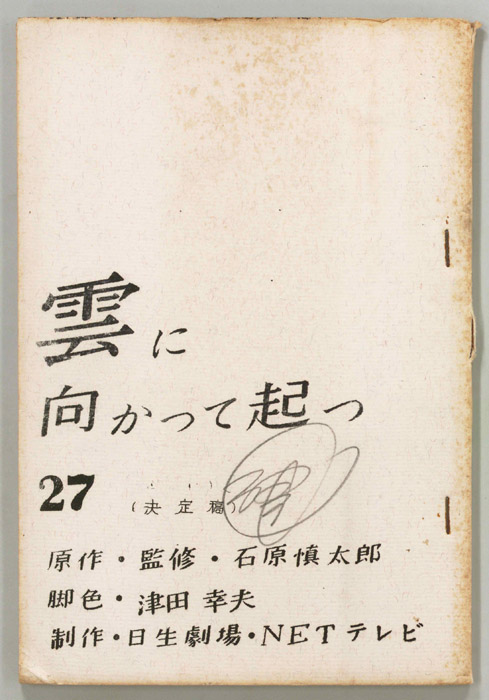 雲に
向かって起つ
27
(決定稿)
原作・監修・石原慎太郎
脚色・津田幸夫
制作・日生劇場・NETテレビ